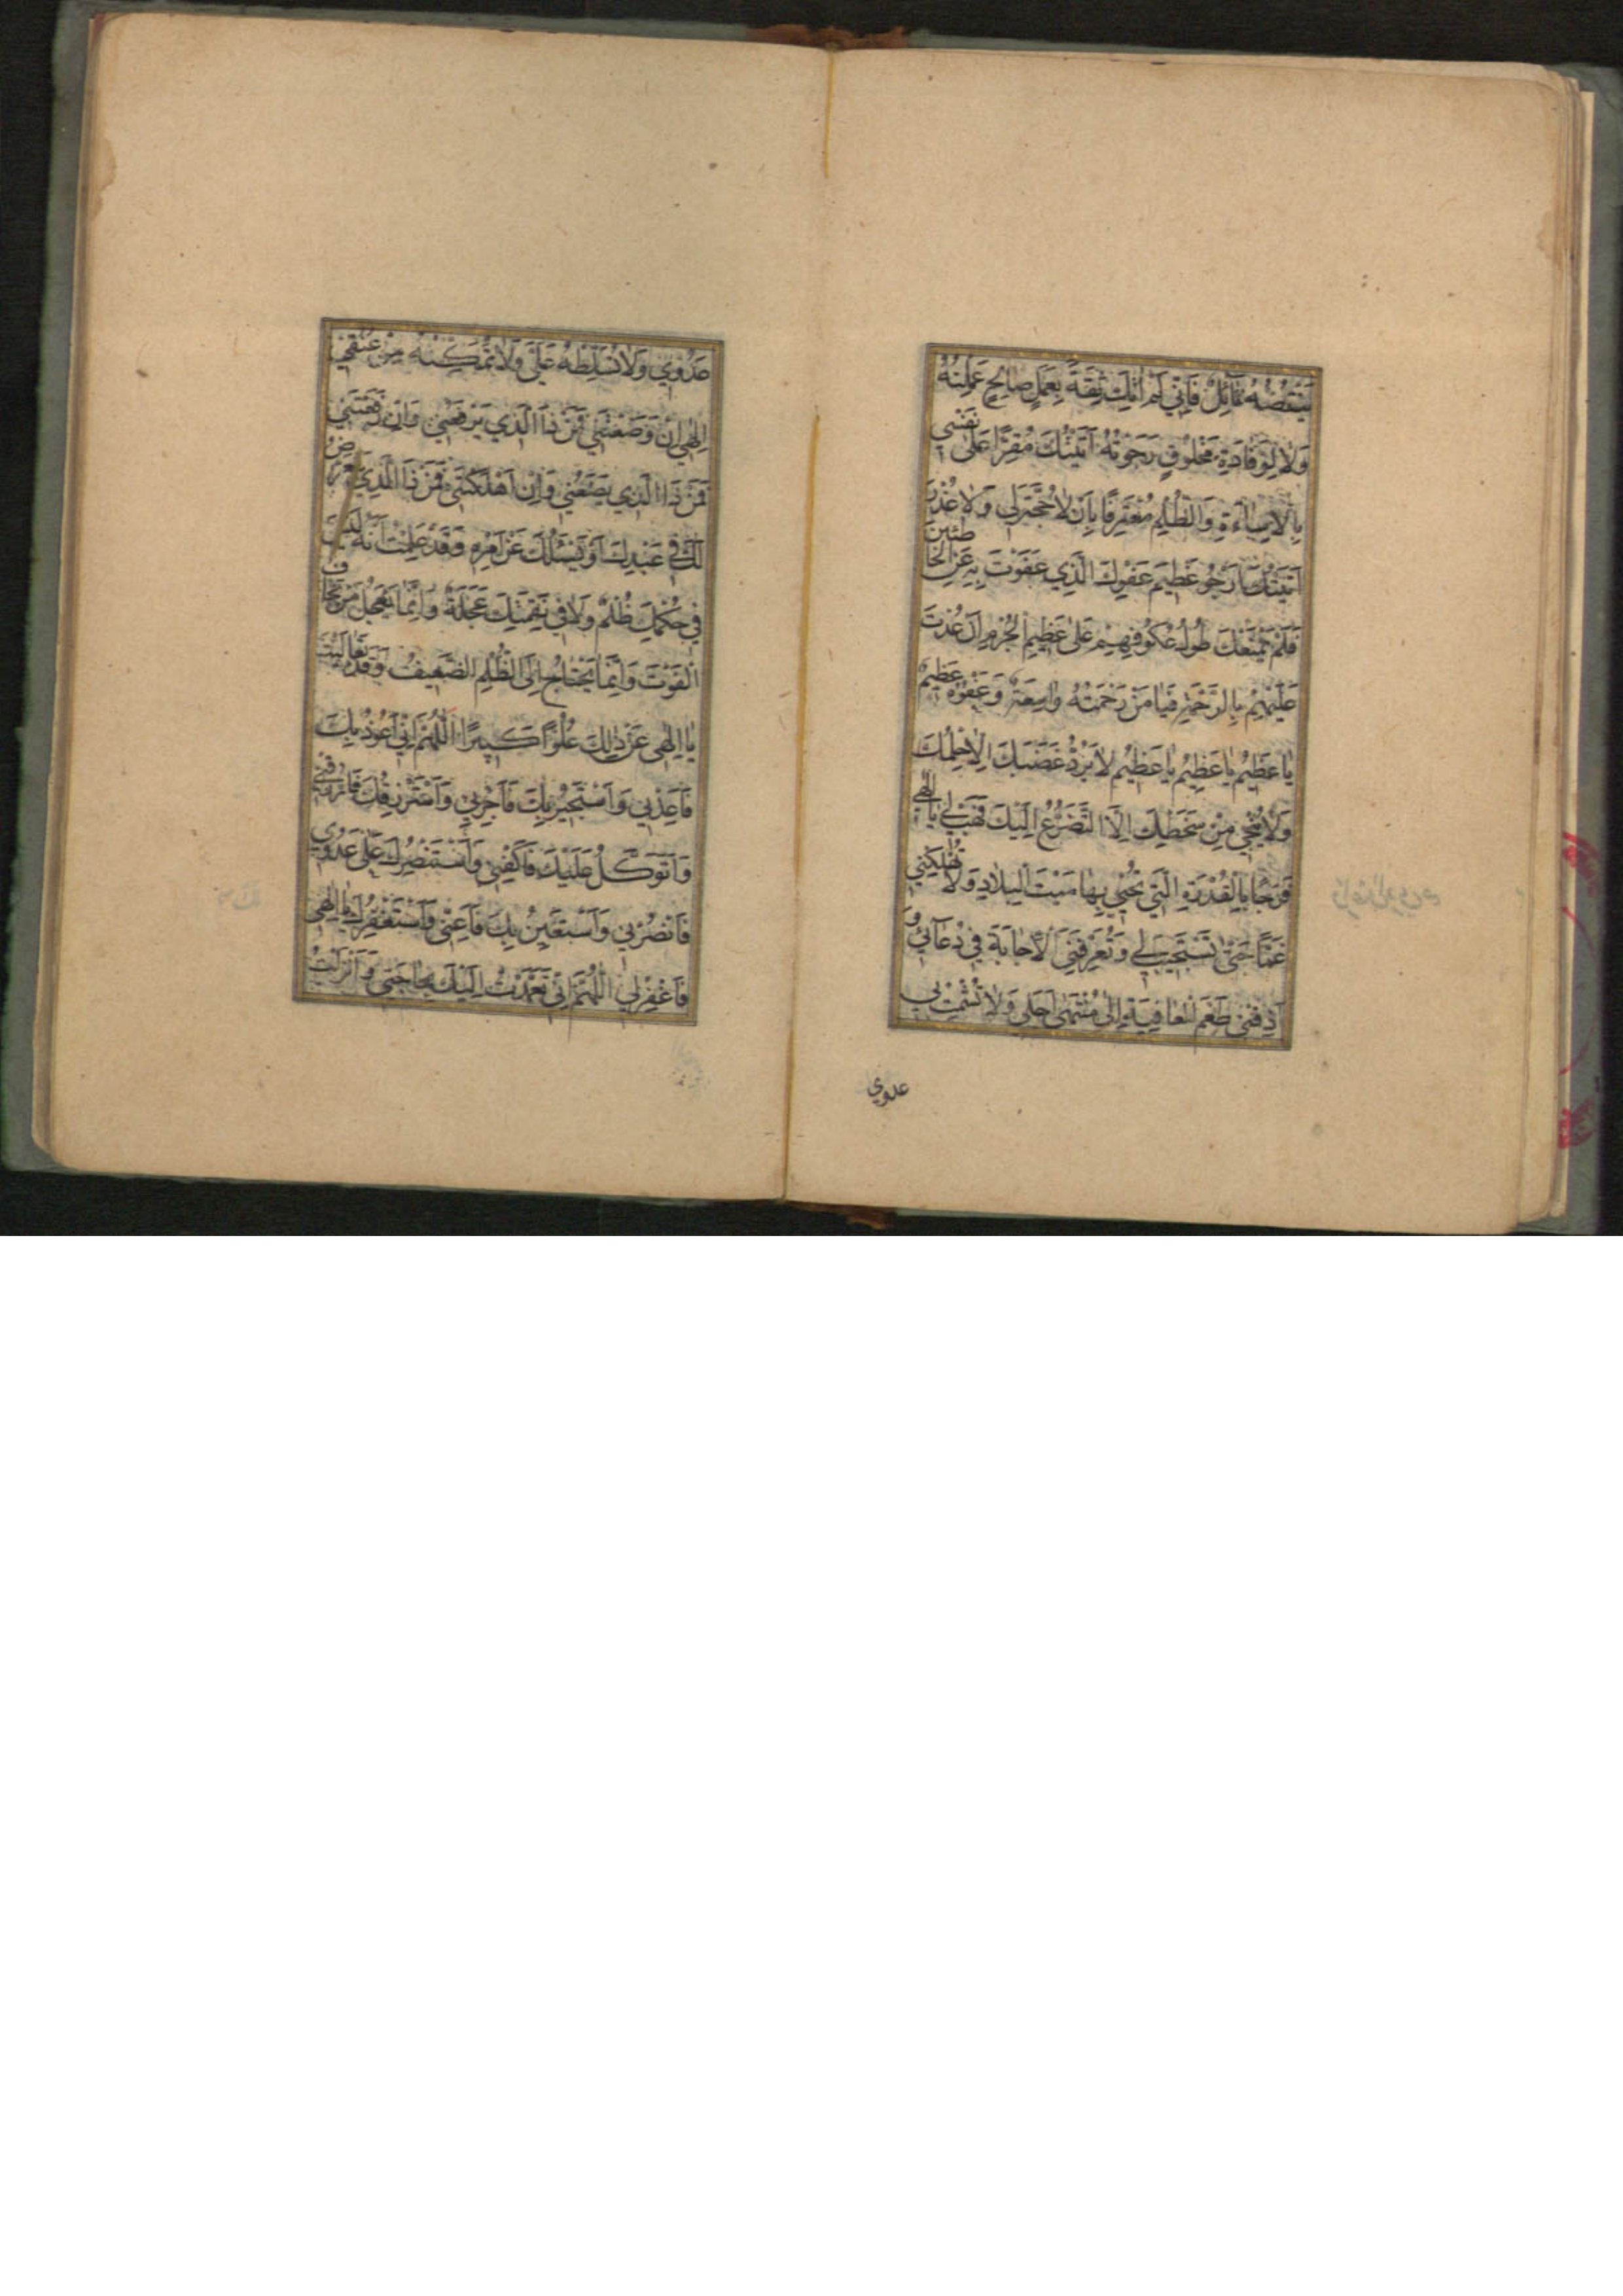 يَنْقُصُهُ نَآئِلٌ فَاِنّي لَمْ اٰتِكَ ثِقَةً بِعَمَلٍ صالِحٍ عَمِلْتُهُ
وَلا لِوَفادَةِ مَخْلُوقٍ رَجَوْتُهُ اَتَيْتُكَ مُقِرًّا عَلىٰ نَفْسي
بِالْاِساءَةِ وَالظُّلْمِ مُعْتَرِفًا بِاَنْ لا حُجَّةَ لي وَلا عُذْرَ
اَتَيْتُكَ اَرْجُو عَظيمَ عَفْوِكَ الَّذي عَفَوْتَ بِهِ عَنِ الْخاطِئينَ
فَلَمْ يَمْنَعْكَ طُولُ عُكُوفِهِمْ عَلىٰ عَظيمِ الْجُرْمِ اَنْ عُدْتَ
عَلَيْهِمْ بِالرَّحْمَةِ فَيا مَنْ رَحْمَتُهُ واسِعَةٌ وَعَفْوُهُ عَظيمٌ
يا عَظيمُ يا عَظيمُ يا عَظيمُ لا يَرُدُّ غَضَبَكَ اِلّا حِلْمُكَ
وَلا يُنْجي مِنْ سَخَطِكَ اِلَّا التَّضَرُّعُ اِلَيْكَ فَهَبْ لي يا اِلٰهي
فَرَجًا بِالْقُدْرَةِ الَّتي تُحْيي بِها مَيْتَ الْبِلادِ وَلا تُهْلِكْني
غَمًّا حَتّىٰ تَسْتَجيبَ لي وَتُعَرِّفَنِي الْاِجابَةَ في دُعآئي وَ
اَذِقْني طَعْمَ الْعافِيَةِ اِلىٰ مُنْتَهىٰ اَجَلي وَلا تُشْمِتْ بي
عدوي
عَدُوّي وَلا تُسَلِّطْهُ عَلَيَّ وَلا تُمَكِّنْهُ مِنْ عُنُقي
اِلٰهي اِنْ وَضَعْتَني فَمَنْ ذَا الَّذي يَرْفَعُني وَاِنْ رَفَعْتَني
فَمَنْ ذَا الَّذي يَضَعُني وَاِنْ اَهْلَكْتَني فَمَنْ ذَا الَّذي يَعْرِضُ
لَكَ في عَبْدِكَ اَوْ يَسْئَلُكَ عَنْ اَمْرِهِ وَقَدْ عَلِمْتُ اَنَّهُ لَيْسَ
في حُكْمِكَ ظُلْمٌ وَلا في نَقِمَتِكَ عَجَلَةٌ وَاِنَّما يَعْجَلُ مَنْ يَخافُ
الْفَوْتَ وَاِنَّما يَحْتاجُ اِلَى الظُّلْمِ الضَّعيفُ وَقَدْ تَعالَيْتَ
يا اِلٰهي عَنْ ذٰلِكَ عُلُوًّا كَبيرًا اَللّٰهُمَّ اِنّي اَعُوذُ بِكَ
فَاَعِذْني وَاَسْتَجيرُ بِكَ فَاَجِرْني وَاَسْتَرْزِقُكَ فَارْزُقْني
وَاَتَوَكَّلُ عَلَيْكَ فَاكْفِني وَاَسْتَنْصِرُكَ عَلىٰ عَدُوّي
فَانْصُرْني وَاَسْتَعينُ بِكَ فَاَعِنّي وَاَسْتَغْفِرُكَ يا اِلٰهي
فَاغْفِرْلي اَللّٰهُمَّ اِنّي تَعَمَّدْتُ اِلَيْكَ بِحاجَتي وَاَنْزَلْتُ